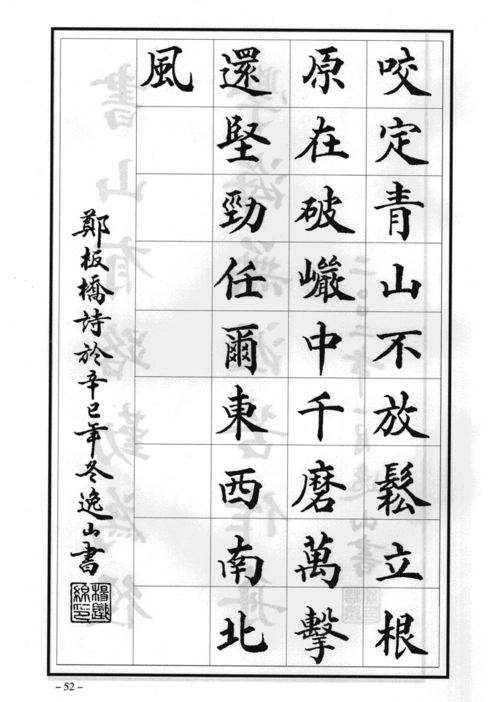 咬定青山不放鬆立根
原在破巗中千磨萬擊
還堅勁任爾東西南北
風
鄭板橋詩於辛巳年冬逸山書
-52-